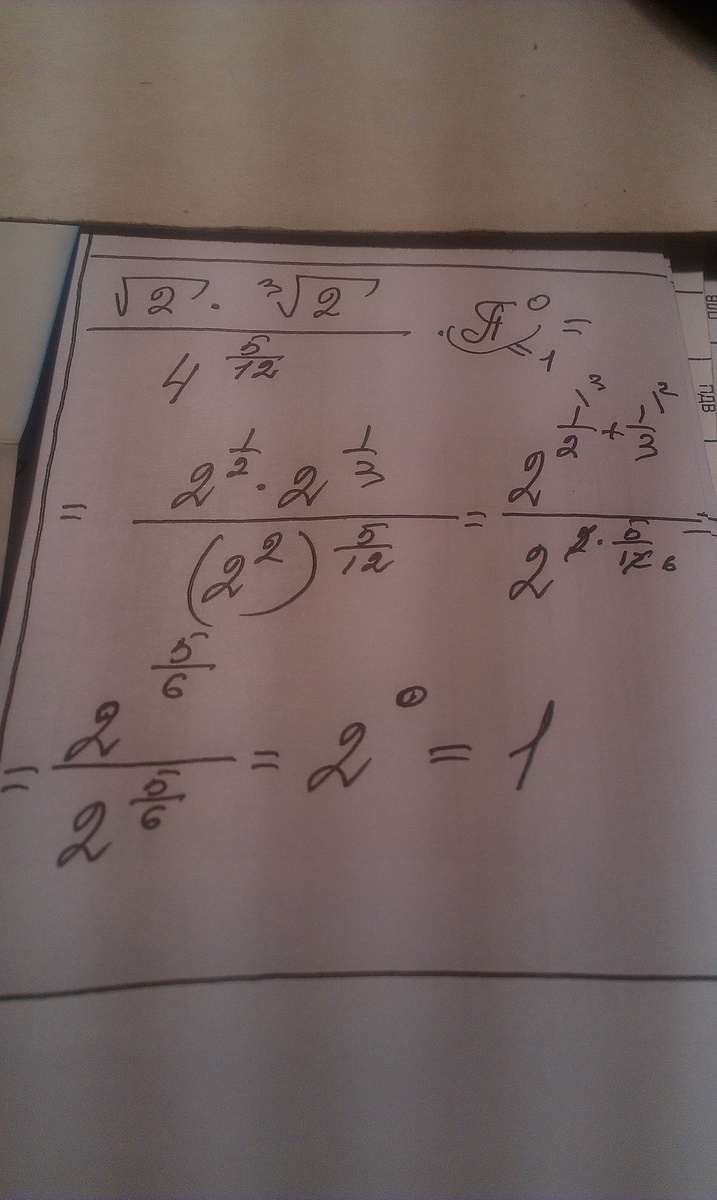 √2 · ³√2 / 4^(5/12) · π⁰ = =1
= 2^(1/2) · 2^(1/3) / (2²)^(5/12) = 2^(1/2 \3 + 1/3 \2) / 2^(2 · 5/12 6) =
= 2^(5/6) / 2^(5/6) = 2⁰ = 1
ПДВ